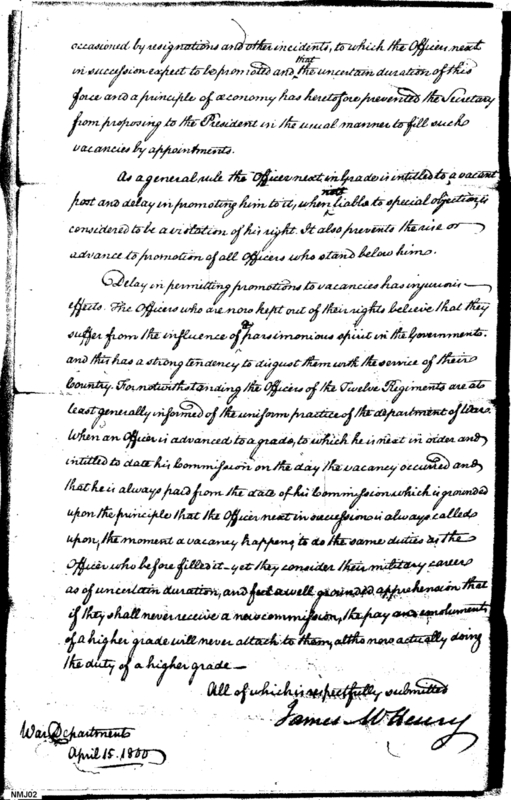 occasioned by resignations and other incidents, to which the Officers next
in succession expect to be promoted and, that the uncertain duration of this
force and a principle of œconomy has heretofore prevented the Secretary
from proposing to the President in the usual manner to fill such
vacancies by appointments.
As a general rule the Officer next in Grade is intitled to a vacant
post and delay in promoting him to it, when not liable to special objection is
considered to be a violation of his right. It also prevents the rise or
advance to promotion of all Officers who stand below him.
Delay in permitting promotions to vacancies has injurious
effects. The Officers who are now kept out of their rights believe that they
suffer from the influence of a parsimonious spirit in the Government.
and this has a strong tendency to disgust them with the service of their
Country. For notwithstanding the Officers of the Twelve Regiments are at
least generally informed of the uniform practice of the department of War.
When an Officer is advanced to a grade, to which he is next in order and
intitled to date his Commission on the day the vacancy occurred and
that he is always paid from the date of his Commission which is grounded
upon the principle that the Officer next in succession is always called
upon, the moment a vacancy happens to do the same duties as the
Officer who before filled it - yet they consider their military career
as of uncertain duration, and feel a well grounded apprehension that
if they shall never receive a new commission, the pay and emoluments
of a higher grade will never attach to them, altho now actually doing
the duty of a higher grade —
All of which is respectfully submitted
James McHenry
War Department
April 15. 1800
NMJ02